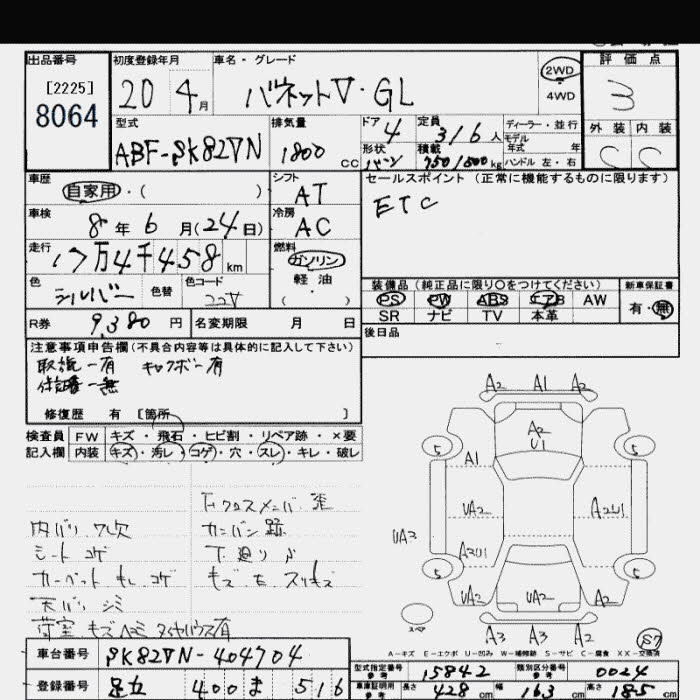 出品番号
[2225]
8064
初度登録年月
20 4月
車名・グレード
バネットV・GL
2WD
4WD
評価点
3
外装 内装
C C
型式
ABF-SK82VN
排気量
1800 CC
ドア 4
形状 バン
定員 3/6 人
積載 750/500 kg
ディーラー・並行
モデル
年式 年
ハンドル 左・右
車歴
自家用・( )
シフト
AT
セールスポイント (正常に機能するものに限ります)
ETC
車検
8年6月(24日)
冷房
AC
走行
17万4千458km
燃料
ガソリン
軽油
( ・ )
色
シルバー
色替
色コード
22V
装備品 (純正品に限り○をつけてください)
PS PW ABS エアB AW
SR ナビ TV 本革
新車保証書
有・無
R券 9,380円
名変期限 月 日
後日品
注意事項申告欄(不具合内容等は具体的に記入して下さい)
取説－有 キャブボー有
保証書－無
修復歴 有 [箇所 ]
検査員 FW キズ・飛石・ヒビ割・リペア跡・×要
記入欄 内装 キズ・汚レ・コゲ・穴・スレ・キレ・破レ
下クロスメンバ歪
内バリ ワレ欠 カンバン跡
シート コゲ 下廻り
カーペット モレ コゲ キズ 右 スリキズ
天バリ シミ
荷室 キズヘコミ タイヤハウス有
A2 A1 A2
A2
U1
5 5
A1
UA2
A2U1
UA3
A2U1
5 5
A2 UA2 A2
スペア
A3 A3 A2
57
A－キズ E－エクボ U－凹み W－補修跡 S－サビ C－腐食 XX－交換済
車台番号 SK82VN-404704
登録番号 足立 400 ま 516
型式指定番号 参考 15842
類別区分番号 参考 0024
車庫証明用 参考 長さ 428 cm 幅 163 cm 高さ 185 cm